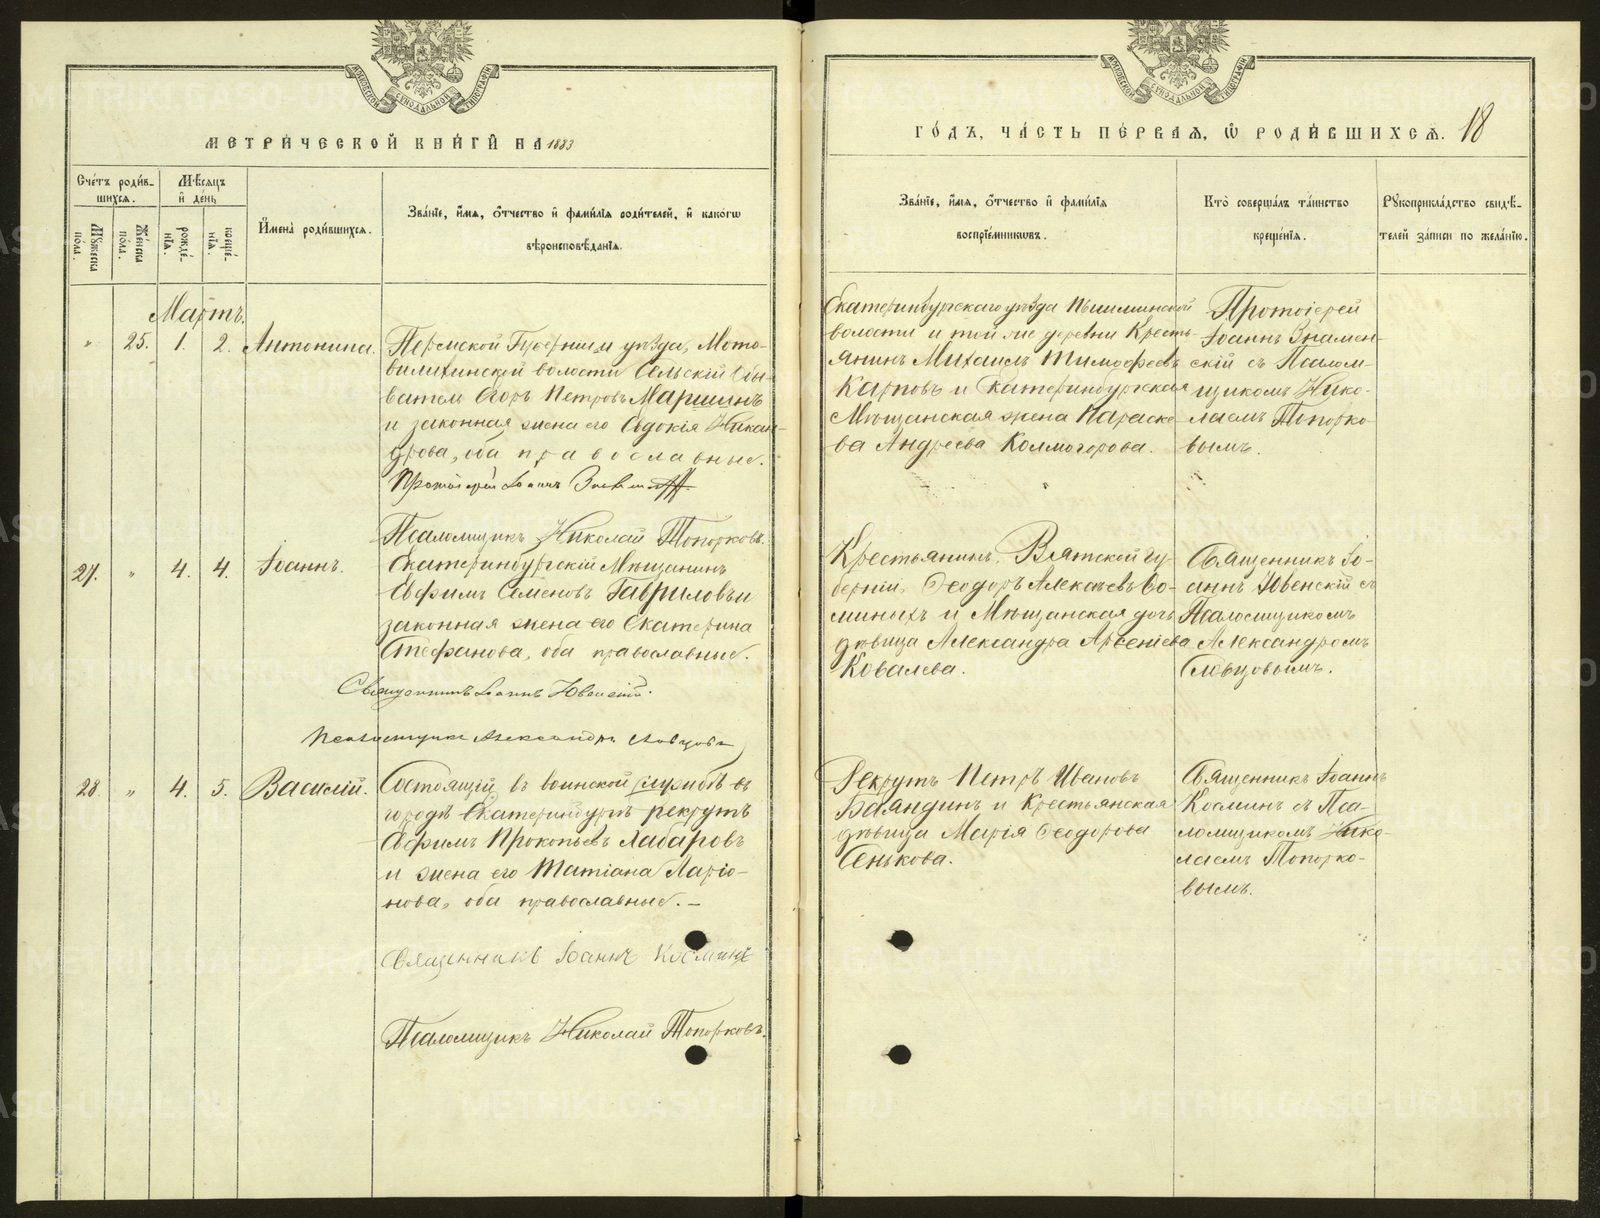 МЕТРИ́ЧЕСКОЙ КНИ́ГИ НА 1883
Сче́тъ роди́в-
шихся.
Мѣ́сяцъ
и҆ де́нь
Му́жеска
по́ла.
Же́нска
по́ла.
рожде́-
нїя.
креще́-
нїя.
И҆мена̀ роди́вшихся.
Зва́нїе, и҆́мя, ѻ҆́тчество и҆ фами́лїя роди́телей, и҆ како́гѡ
вѣроисповѣ́данїя.
Мартъ.
" 25. 1. 2. Антонина.
Пермской Губерніи и уѣзда, Мото-
вилихинской волости Сельскій Обы-
ватель Егоръ Петровъ Маршинъ
и законная жена его Евдокія Никан-
дрова, оба православные.
Протоіерей Іоаннъ
Псаломщикъ Николай Топорковъ.
27. " 4. 4. Іоаннъ.
Екатеринбургскій Мѣщанинъ
Ефимъ Семеновъ Гавриловъ и
законная жена его Екатерина
Стефанова, оба православные.
Священникъ Іоаннъ Ювенскій.
Псаломщикъ Александръ Словцовъ
28. " 4. 5. Василій.
Состоящій въ воинской службѣ въ
городѣ Екатеринбургѣ рекрутъ
Ефимъ Прокопьевъ Хабаровъ
и жена его Татіана Ларіо-
нова, оба православные. —
Священникъ Іоаннъ Косминъ
Псаломщикъ Николай Топорковъ.
ГО́ДЪ, ЧА́СТЬ ПЕ́РВАЯ, Ѡ҆ РОДИ́ВШИХСЯ. 18
Зва́нїе, и҆́мя, ѻ҆́тчество и҆ фами́лїя
воспрїе́мникѡвъ.
Кто̀ соверша́лъ та́инство
креще́нїя.
Рꙋкоприкла́дство свидѣ́-
телей за́писи по жела́нїю.
Екатеринбургскаго уѣзда Пышминской
волости и той же деревни Кресть-
янинъ Михаилъ Тимофеевъ
Карповъ и Екатеринбургская
Мѣщанская жена Параске-
ва Андреева Колмогорова.
Протоіерей
Іоаннъ Знамен-
скій съ Псалом-
щикомъ Нико-
лаемъ Топорко-
вымъ.
Крестьянинъ Вятской Гу-
берніи, Ѳеодоръ Алексѣевъ Ѳо-
миныхъ и Мѣщанская дочь
дѣвица Александра Арсеніева
Ковалева.
Священникъ Іо-
аннъ Ювенскій съ
Псаломщикомъ
Александромъ
Словцовымъ.
Рекрутъ Петръ Ивановъ
Баландинъ и Крестьянская
дѣвица Марія Ѳеодорова
Сенькова.
Священникъ Іоаннъ
Косминъ съ Пса-
ломщикомъ Нико-
лаемъ Топорко-
вымъ.
METRIKI.GASO-URAL.RU